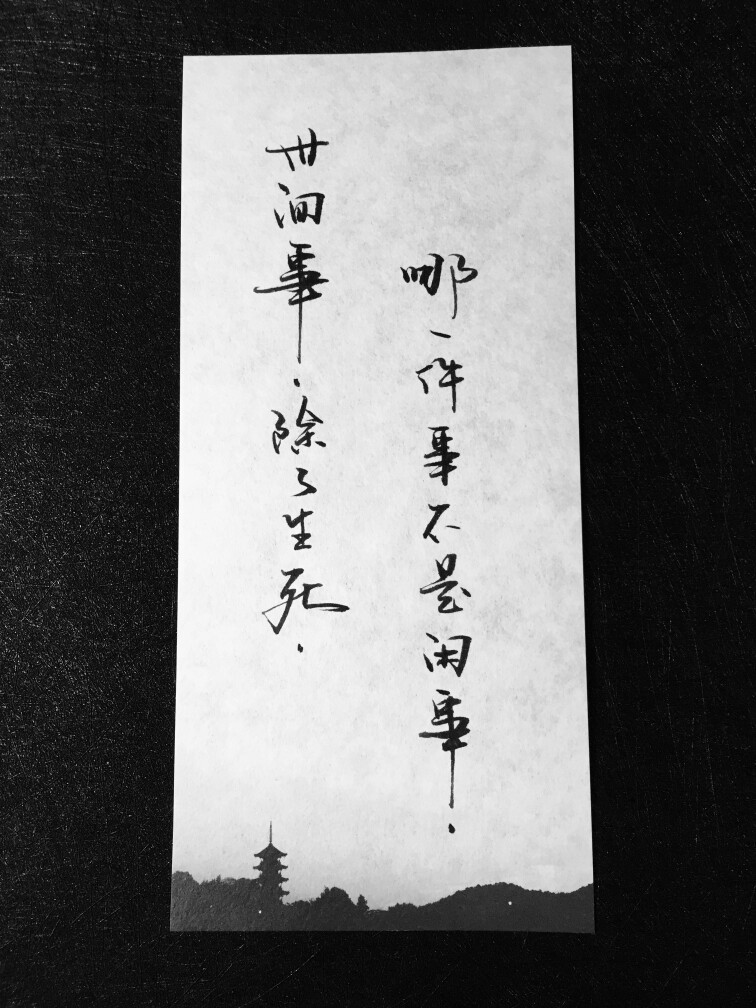 世间事、除了生死、
哪一件事不是闲事、